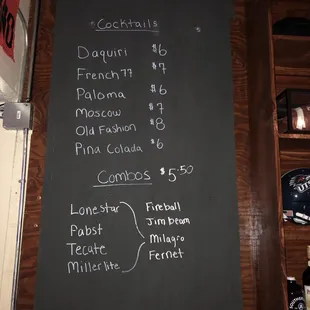 Cocktails
Daquiri $6
French 77 $7
Paloma $6
Moscow $7
Old Fashion $8
Pina Colada $6
Combos $5.50
Lonestar
Pabst
Tecate
Millerlite
Fireball
Jim beam
Milagro
Fernet